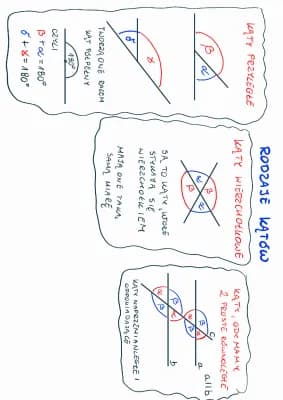 RODZAJE KĄTÓW
KĄTY PRZYLEGŁE
β
α
γ
δ
TWORZĄ ONE RAZEM
KĄT PÓŁPEŁNY
180°
CZYLI
β + α = 180°
δ + γ = 180°
KĄTY WIERZCHOŁKOWE
α
β
β
α
SĄ TO KĄTY, KTÓRE
STYKAJĄ SIĘ
WIERZCHOŁKIEM
MAJĄ ONE TAKĄ
SAMĄ MIARĘ
KĄTY, GDY MAMY
2 PROSTE RÓWNOLEGŁE
a||b
c
a
b
α
β
β
α
α
β
β
α
KĄTY NAPRZEMIANLEGŁE I
ODPOWIADAJĄCE